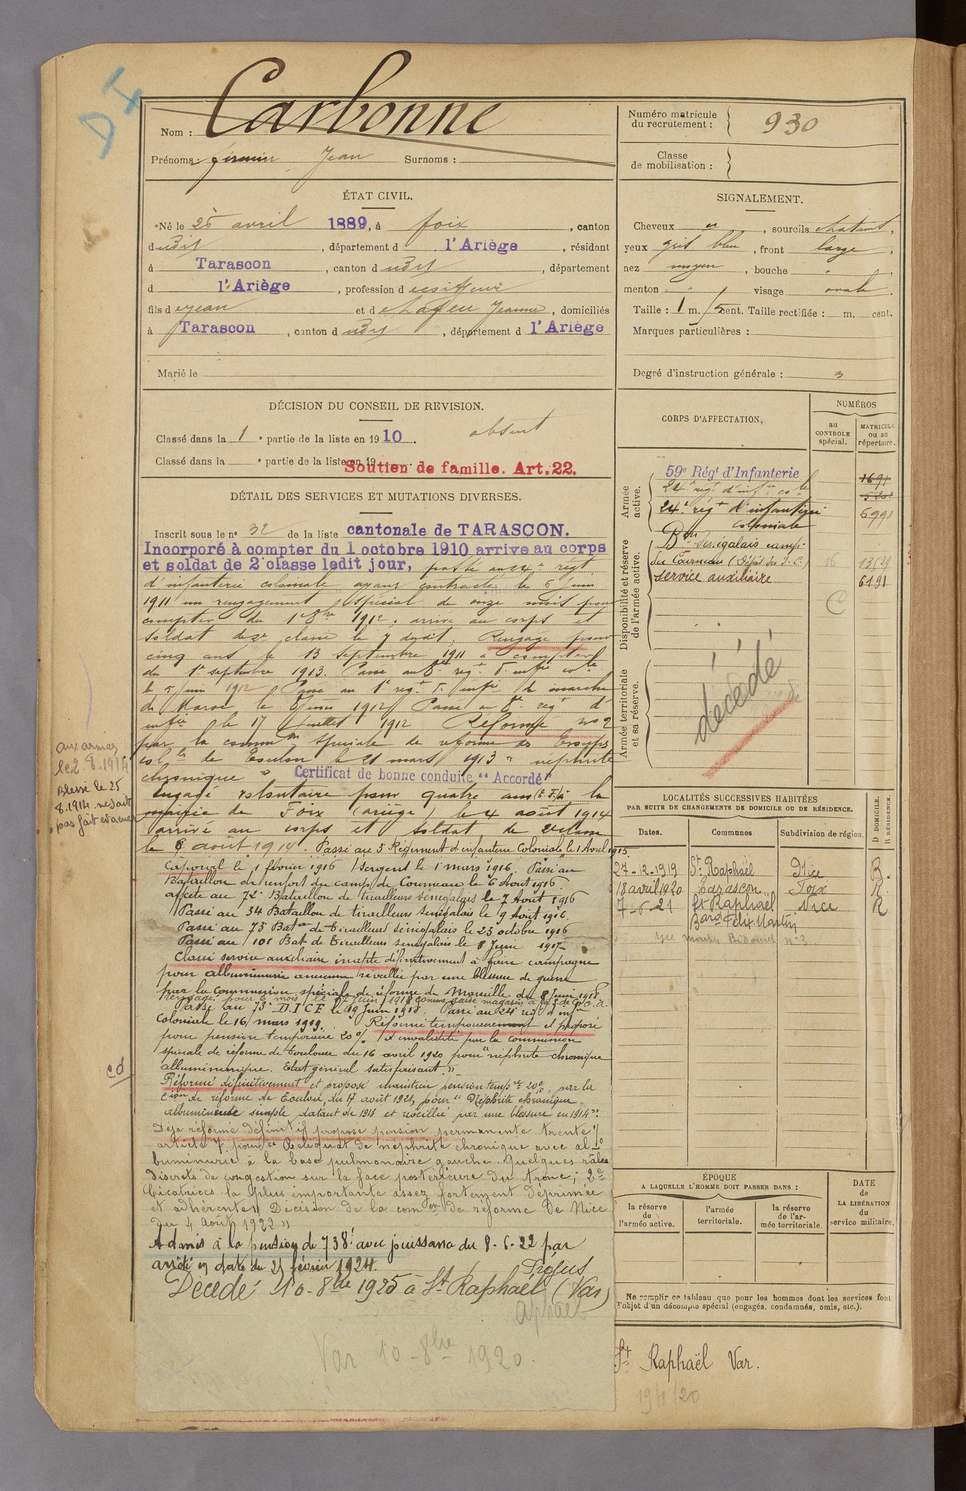 D I
Nom : Carbonne
Prénoms : Firmin Jean Surnoms :
Numéro matricule
du recrutement : 930
Classe
de mobilisation :
ÉTAT CIVIL.
Né le 25 avril 1889, à foix, canton
dudit, département d l'Ariège, résidant
à Tarascon, canton dudit, département
d l'Ariège, profession d
fils de Jean et de Jeanne, domiciliés
à Tarascon, canton dudit, département d l'Ariège
Marié le
SIGNALEMENT.
Cheveux , sourcils chatains,
yeux gris bleu, front large,
nez moyen, bouche "
menton " visage ovale.
Taille : 1 m. cent. Taille rectifiée : m. cent.
Marques particulières :
Degré d'instruction générale : 3
DÉCISION DU CONSEIL DE REVISION.
Classé dans la 1e partie de la liste en 1910. absent
Classé dans la e partie de la liste en 19
Soutien de famille. Art. 22.
DÉTAIL DES SERVICES ET MUTATIONS DIVERSES.
Inscrit sous le n° 32 de la liste cantonale de TARASCON.
Incorporé à compter du 1 octobre 1910 arrive au corps
et soldat de 2e classe ledit jour, passé au 24e régt
d'infanterie coloniale ayant contracté le 6 juin
1911 un rengagement spécial de onze mois pour
compter du 1er 8bre 1912. arrivé au corps et
soldat de 2e classe le 7 dudit. Rengagé pour
cinq ans le 13 septembre 1911 à compter
du 1er septembre 1913. Passé au 8e régt d'infie colle
le 5 juin 1912 Passé au 1er régt d'infie de marche
du Maroc le 8 juin 1912 Passé au 6e régt d'
infie le 17 juillet 1912 Réformé no 2
par la common spéciale de réforme des troupes
colles de Toulon le 21 mars 1913 " néphrite
chronique " Certificat de bonne conduite "Accordé"
Engagé volontaire pour quatre ans à la
mairie de Foix (ariège) le 4 août 1914
arrivé au corps et soldat de 2e classe
le 6 août 1914. Passé au 3 Régiment d'infanterie Coloniale le 1 Avril 1915
Caporal le 1 février 1916 Sergent le 1 mars 1916. Passé au
Bataillon de renfort du camp de Courneau le 6 Août 1916
affecté au 72e Bataillon de tirailleurs sénégalais le 7 Août 1916
Passé au 34 Bataillon de tirailleurs sénégalais le 9 Août 1916.
Passé au 73 Baton de Tirailleurs sénégalais le 23 octobre 1916
Passé au 101 Bat de Tirailleurs sénégalais le 8 Juin 1917
Classé service auxiliaire inapte définitivement à faire campagne
pour albuminurie ancienne réveillée par une blessure de guerre
par la Commission spéciale de réforme de Marseille du 8 Juin 1918
Rengagé pour 6 mois le 12 juin 1918 comme garde magasin
Passé au 73e D.I.C.E le 19 Juin 1918. Passé au 24 rég d'infie
Coloniale le 16 mars 1919. Réformé temporairement et proposé
pour pension temporaire 20% d'invalidité par la commission
spéciale de réforme de Toulouse du 16 avril 1920 pour "néphrite chronique
albuminurique. Etat général satisfaisant."
Réformé définitivement et proposé maintien pension tempre 20% par la
Cion de réforme de Toulon, du 17 août 1921, pour " Néphrite chronique.
albuminurie simple datant de 1913 et réveillée par une blessure en 1914".
Déjà réformé définitif proposé pension permanente trente %
article 7 pour " Reliquat de néphrite chronique avec al-
buminurie à la base pulmonaire gauche. Quelques râles
discrets de congestion sur la face postérieure du tronc; 2°
Cicatrices la plus importante assez fortement déprimée
et adhérente" Décision de la comon de réforme de Nice
du 4 Août 1922 "
Admis à la pension de 738f avec jouissance du 8-6-22 par
arrêté en date du 21 février 1924
Fréjus
Décédé 10-8bre 1925 à St Raphaël (Var)
aphael
Var 10-8bre 1920.
aux armées
le 2.8.1914
Blessé le 25
8.1914
c d
CORPS D'AFFECTATION.
NUMÉROS
au
CONTROLE
spécial.
MATRICULE
ou au
répertoire.
Armée
active.
59e Régt d'Infanterie 1691
24e régt d'infie colle
24e régt d'infanterie 6991
coloniale
Disponibilité et réserve
de l'armée active.
Bon Sénégalais camp
du Courneau (Dépôt des I.C.) 16
service auxiliaire 6191
C
Armée territoriale
et sa réserve.
décédé
LOCALITÉS SUCCESSIVES HABITÉES
PAR SUITE DE CHANGEMENTS DE DOMICILE OU DE RÉSIDENCE.
Dates. Communes Subdivision de région. D. DOMICILE. R. RÉSIDENCE.
27-12-1919 St Raphaël Nice R.
18 avril 1920 Tarascon Foix R.
7-6-21 St Raphaël Nice R
Bard Félix Martin
n° 3
ÉPOQUE
A LAQUELLE L'HOMME DOIT PASSER DANS :
la réserve
de
l'armée active.
l'armée
territoriale.
la réserve
de l'ar-
mée territoriale.
DATE
de
LA LIBÉRATION
du
service militaire.
Ne remplir ce tableau que pour les hommes dont les services font
l'objet d'un décompte spécial (engagés, condamnés, omis, etc.).
St Raphaël Var.
19/1/20